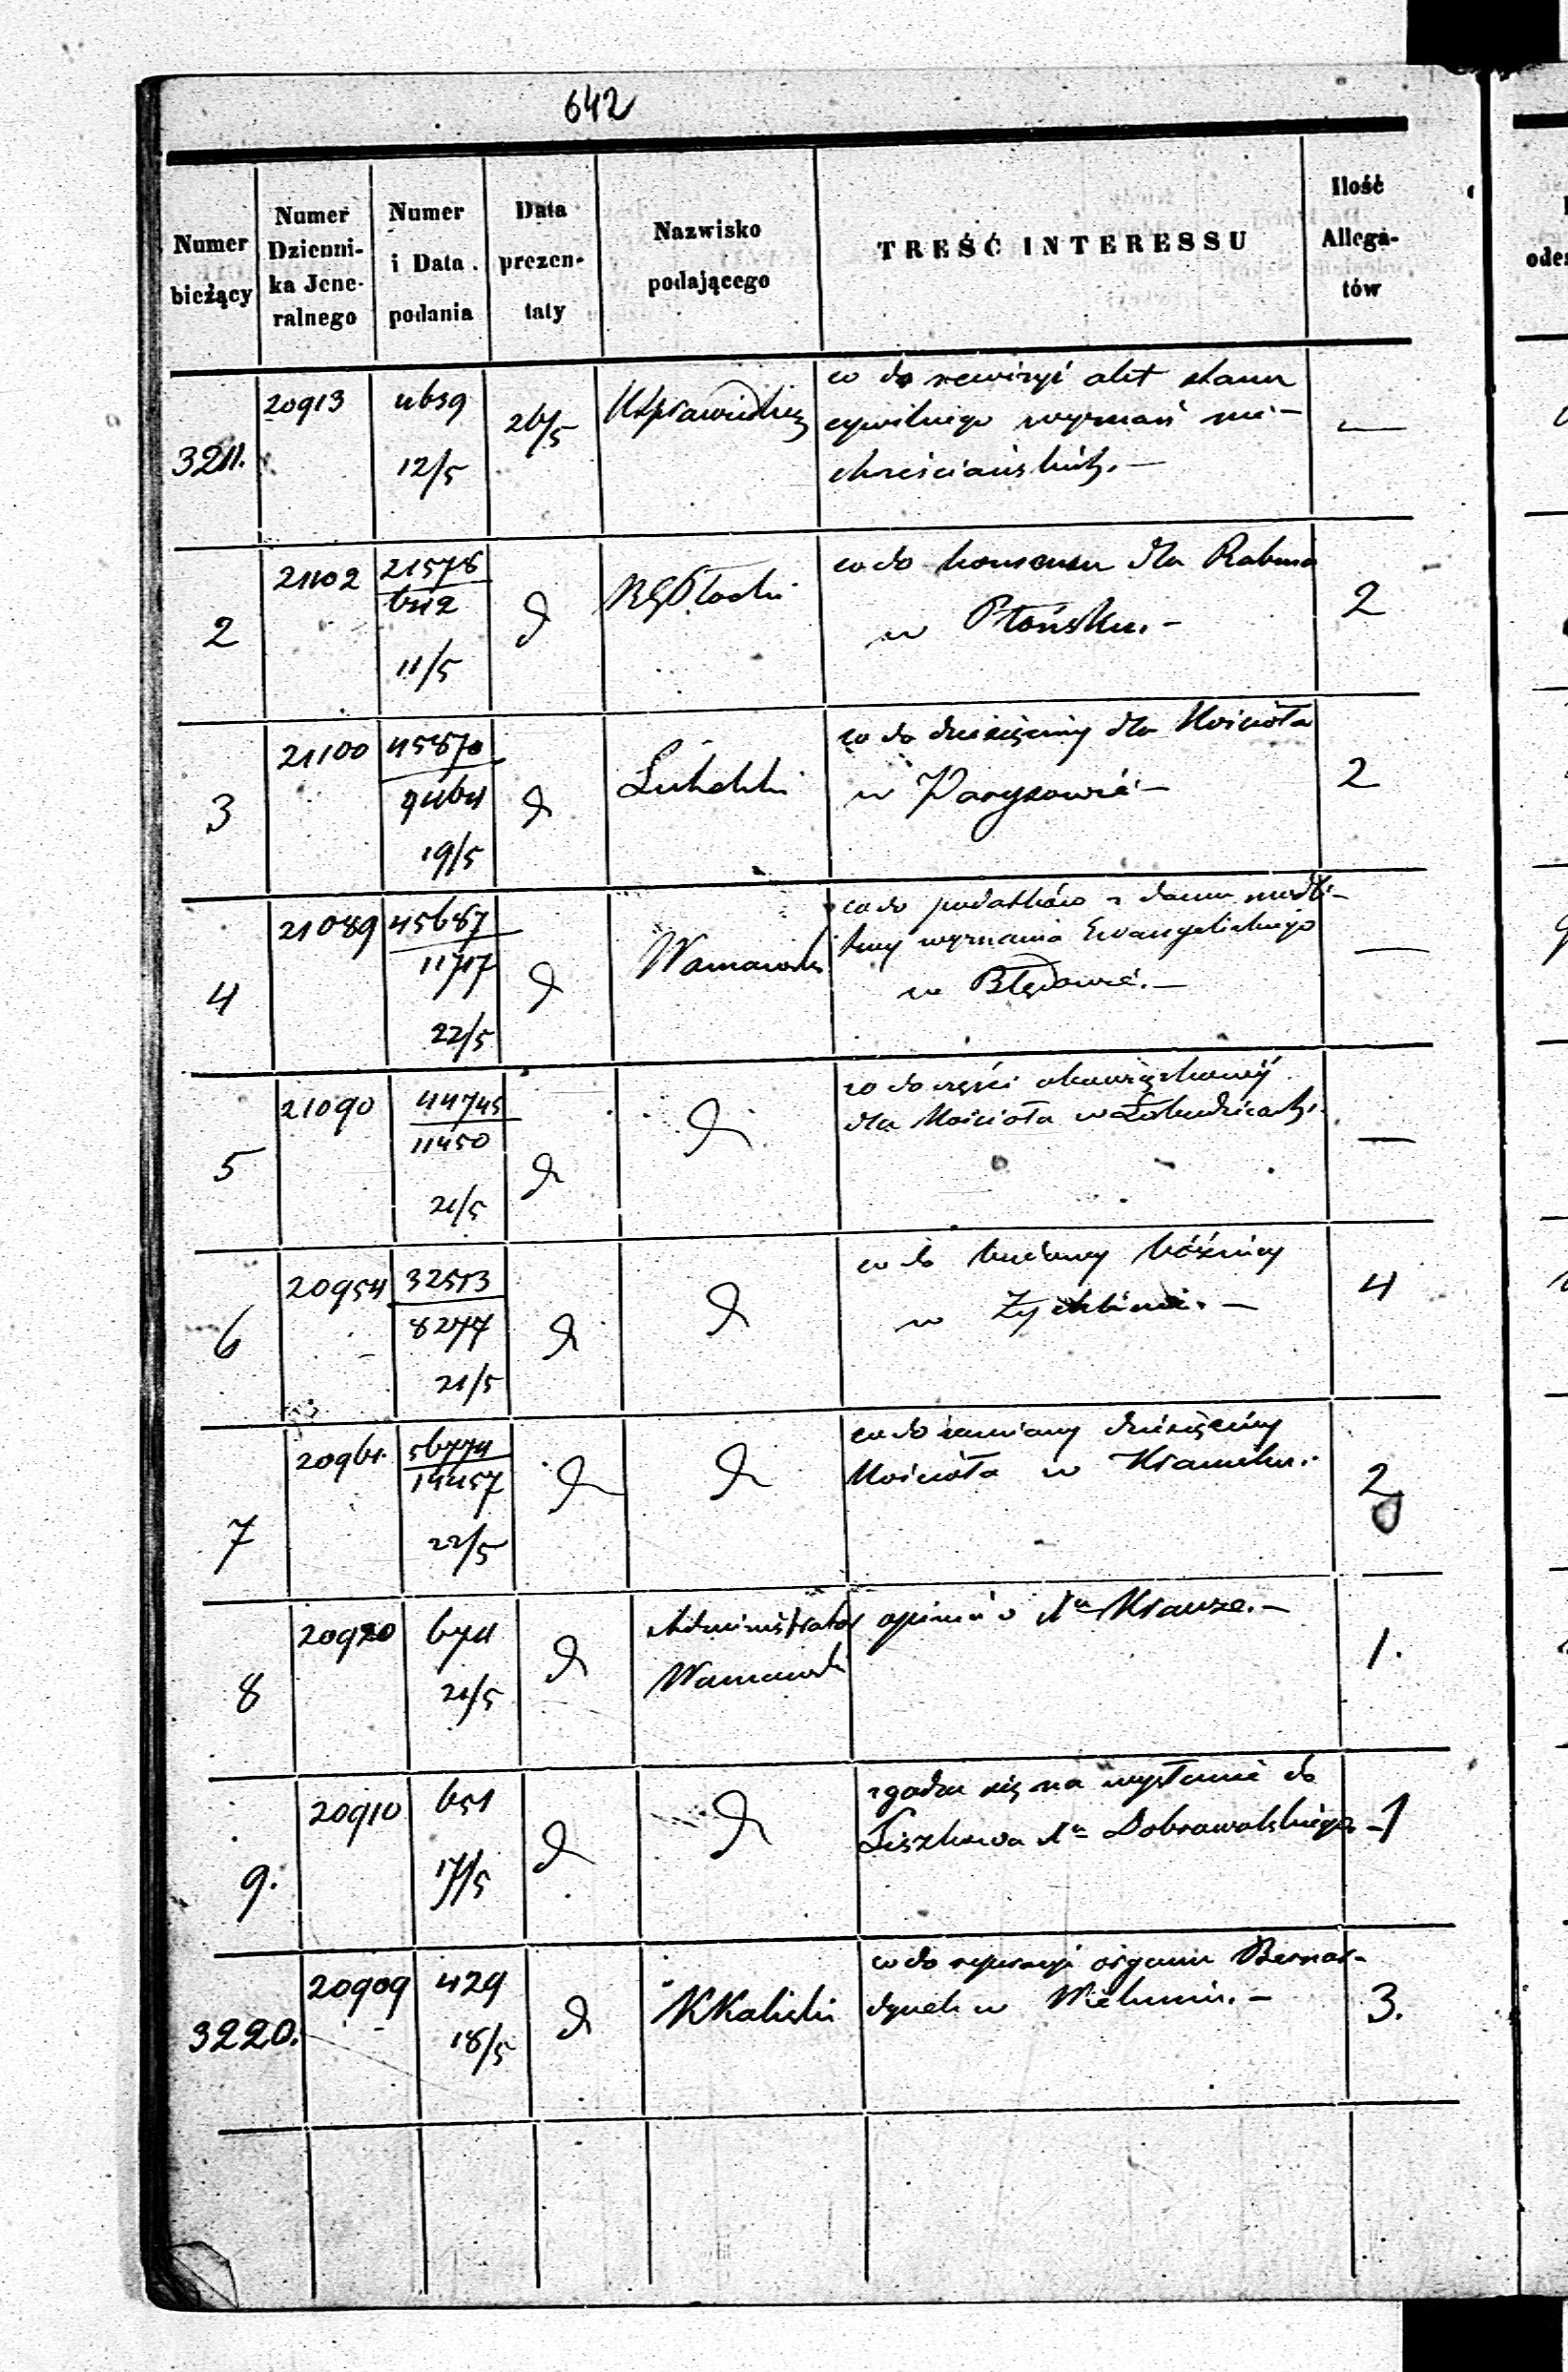 642
Numer bieżący
Numer Dzienni- ka Jene- ralnego
Numer i Data podania
Data prezen- taty
Nazwisko podającego
TREŚĆ INTERESSU
Ilość Allega- tów
3211. 20913 4639 12/5 26/5 —
co do rewizyi akt stanu
cywilnego wyznań nie-
chrześciańskich.—
2 21102 21578 11/5 RGPłocki 2
co do konsensu dla Rabina
w Płońsku.—
3 21100 45870 9464 19/5 Lubelski 2
co do dziesięciny dla Kościoła
w Parysowie—
4 21089 45687 11717 22/5 Warszawski —
co do podatków z domu modli-
twy wyznania Ewangelickiego
w Błędowie.—
5 21090 44745 11450 21/5 —
co do części obowiązkowej
dla Kościoła w Łobudzicach.
6 20954 32513 8277 21/5 4
co do budowy bóźnicy
w Żychlinie.—
7 20961. 56774 14457 22/5 2
co do zamiany dziesięciny
Kościoła w
8 20920 674 21/5 Administrator Warszawski 1.
opinia o Xu Krauze.—
9. 20910 651 17/5 -1
zgadza się na wysłanie do
Liszkowa Xa Dobrowolskiego
3220. 20909 429 18/5 KKaliski 3.
co do reperacyi organu Bernar-
dynek w Wieluniu.—